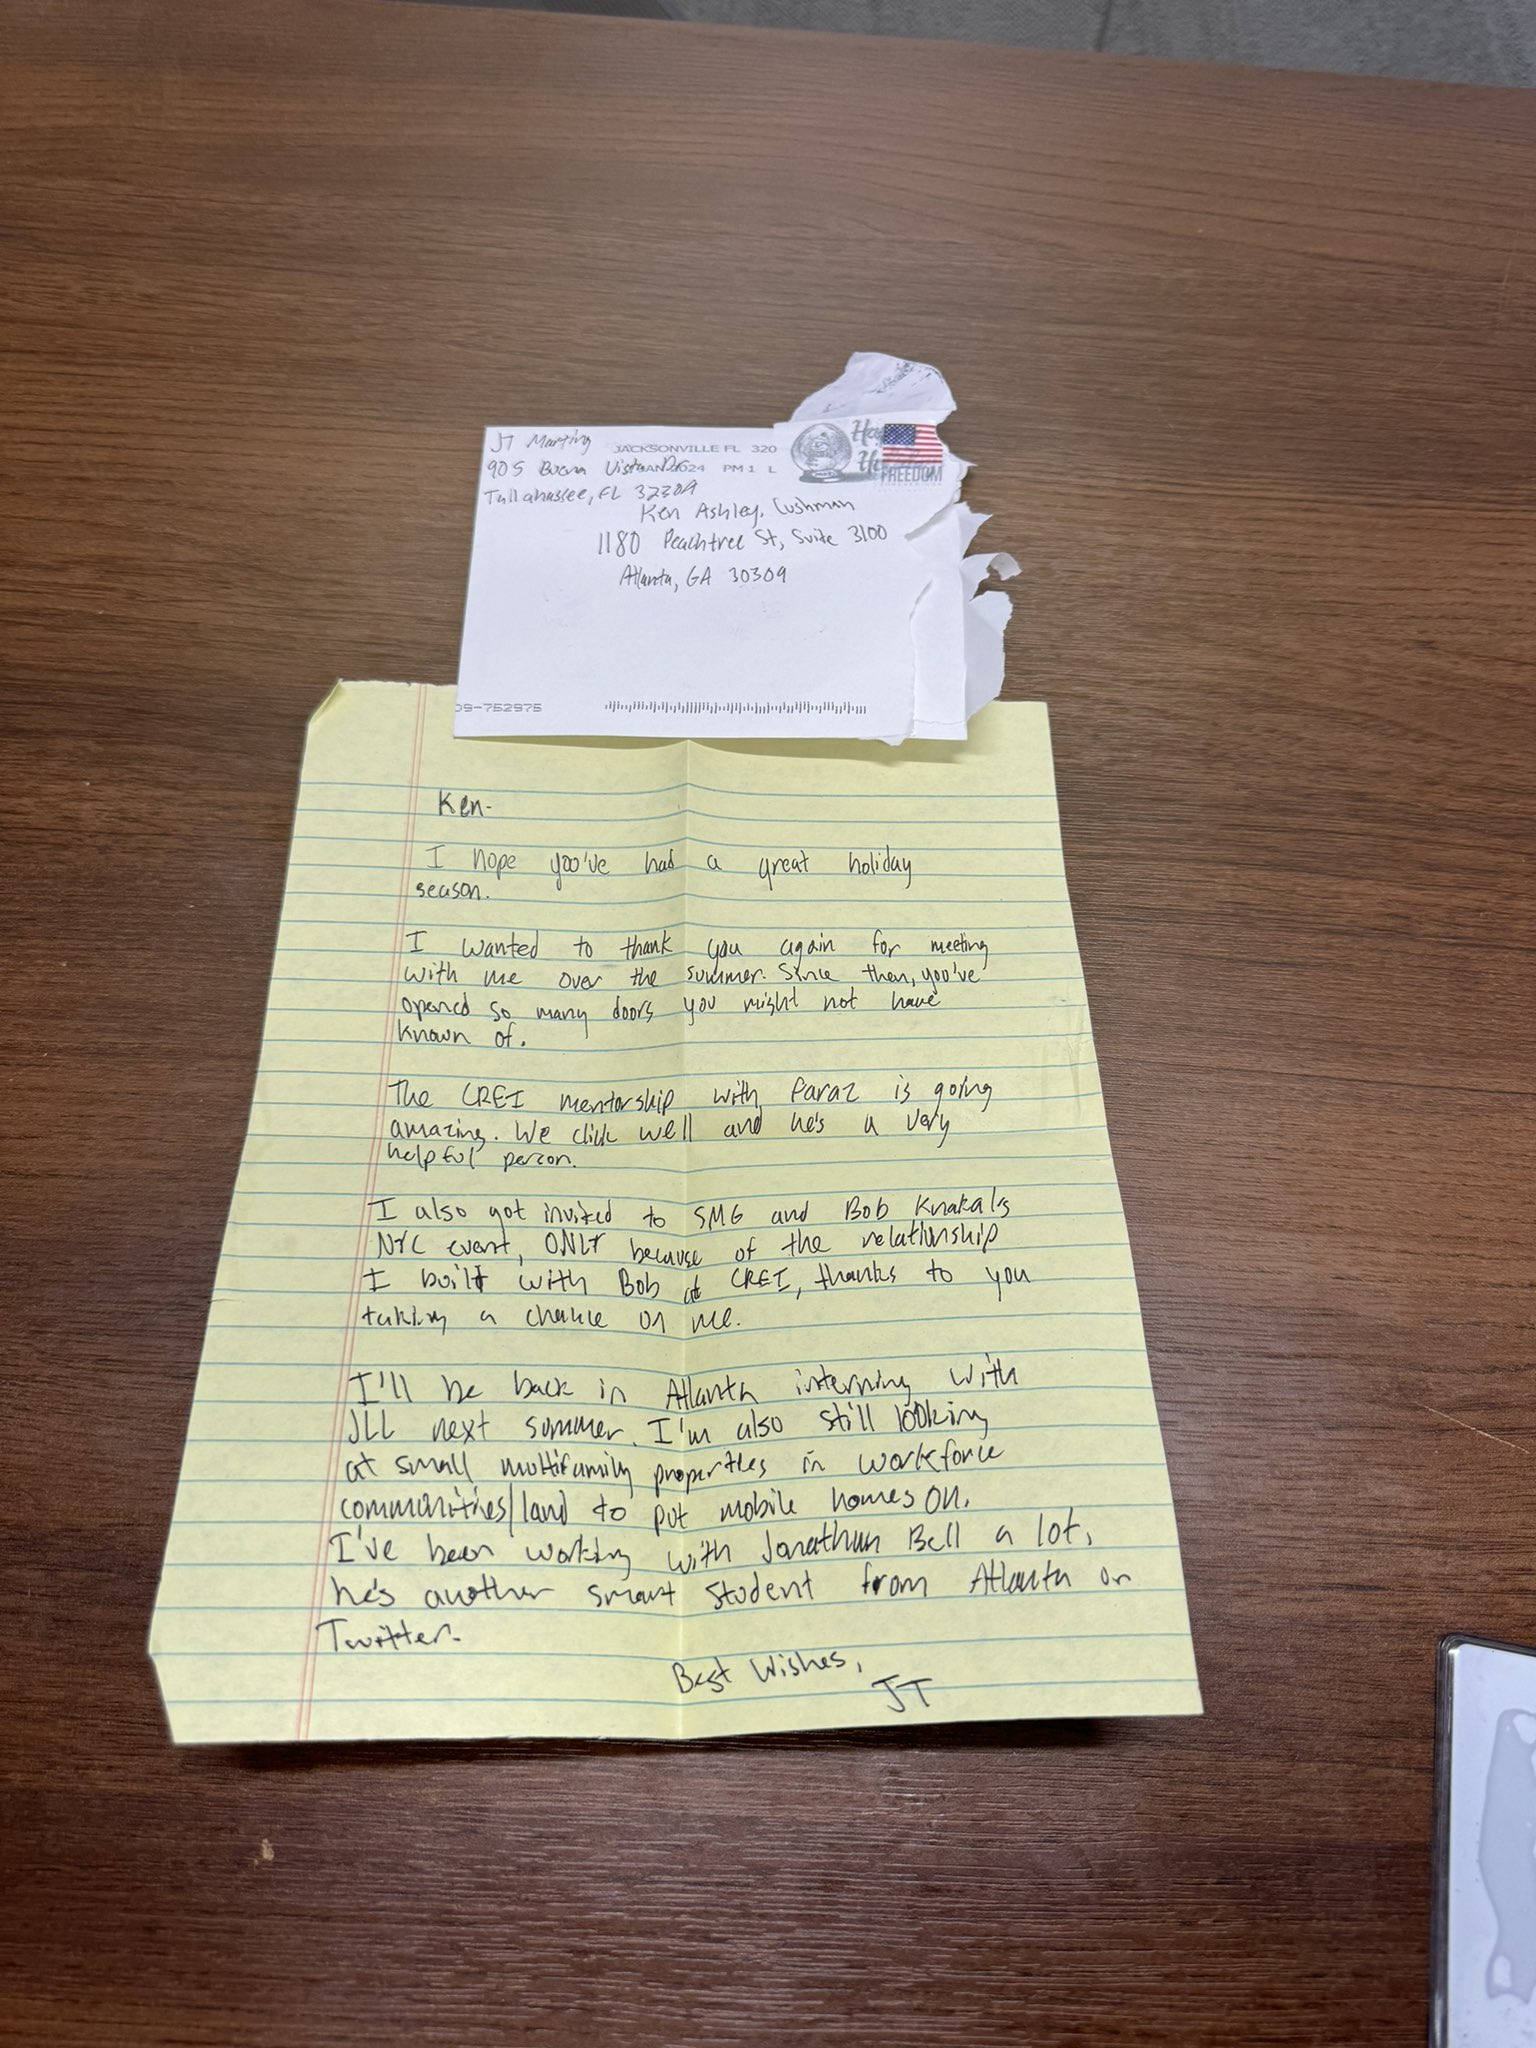 JT
JACKSONVILLE FL 320
905 Buena Vista Dr
2024 PM 1 L
FREEDOM
Tallahassee, FL
Ken Ashley, Cushman
1180 Peachtree St, Suite 3100
Atlanta, GA 30309
09-752975
Ken-
I hope you've had a great holiday
season.
I wanted to thank you again for meeting
with me over the summer. Since then, you've
opened so many doors you might not have
known of.
The CREI mentorship with Faraz is going
amazing. We click well and he's a very
helpful person.
I also got invited to SMG and Bob Knakal's
NYC event, ONLY because of the relationship
I built with Bob at CREI, thanks to you
taking a chance on me.
I'll be back in Atlanta interning with
JLL next summer. I'm also still looking
at small multifamily properties in workforce
communities/land to put mobile homes on.
I've been working with Jonathan Bell a lot,
he's another smart student from Atlanta on
Twitter.
Best Wishes,
JT